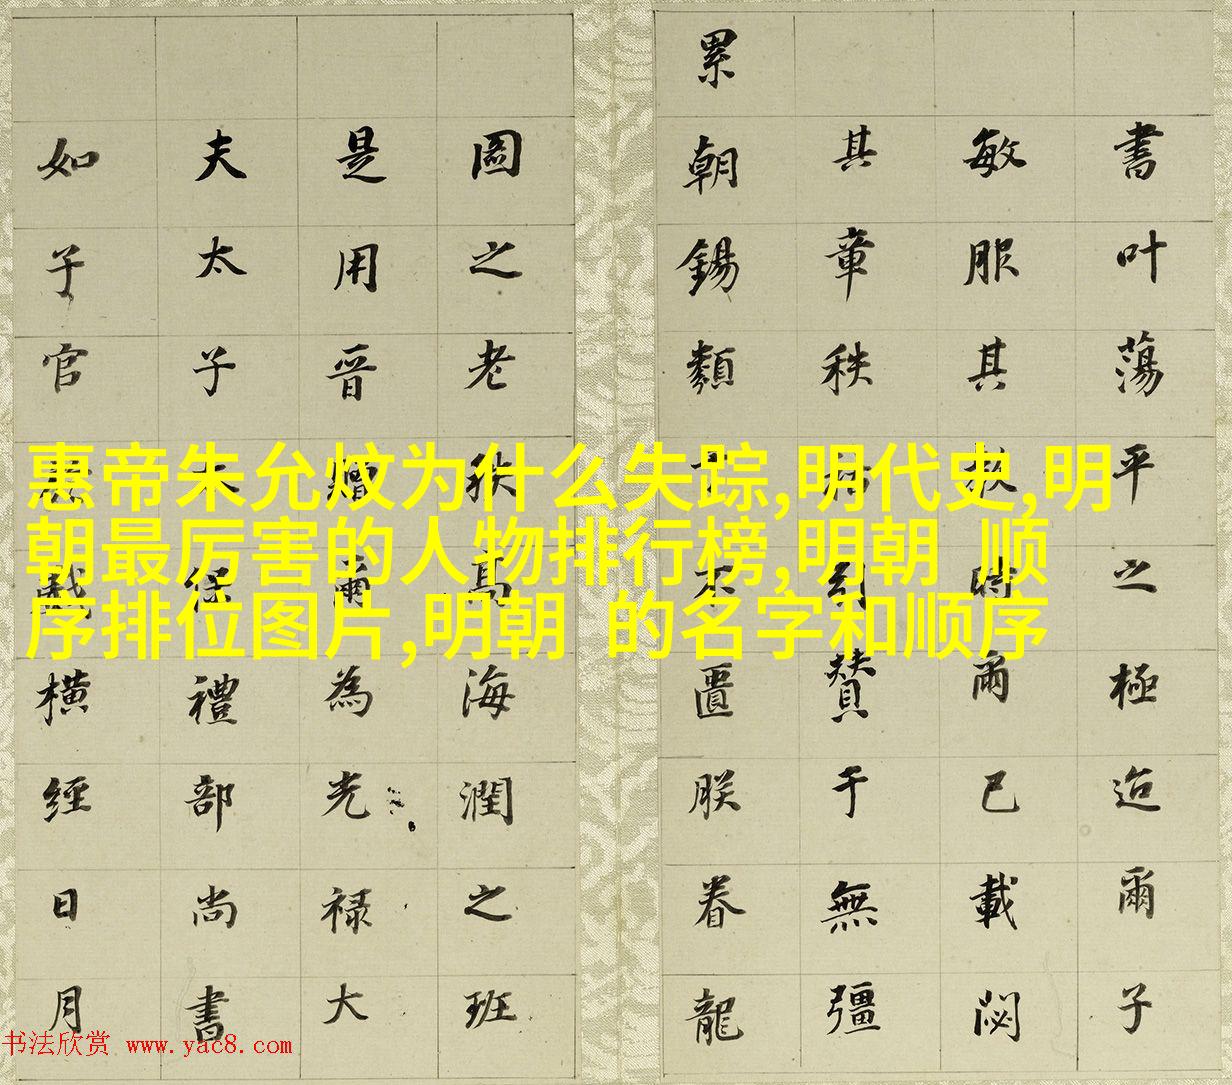 書叶蕩平之極迨爾子
敏服其時爾已載閟
其章秩贊于無彊
累朝錫類不匱朕眷龍
圖之老秩高海潤之班
是用晋爾為光禄大
夫太子太保禮部尚書
如子官橫經日月
惠帝朱允炆为什么失踪,明代史,明
朝最厉害的人物排行榜,明朝 顺
序排位图片,明朝 的名字和顺序
书法欣赏 www.yac8.com